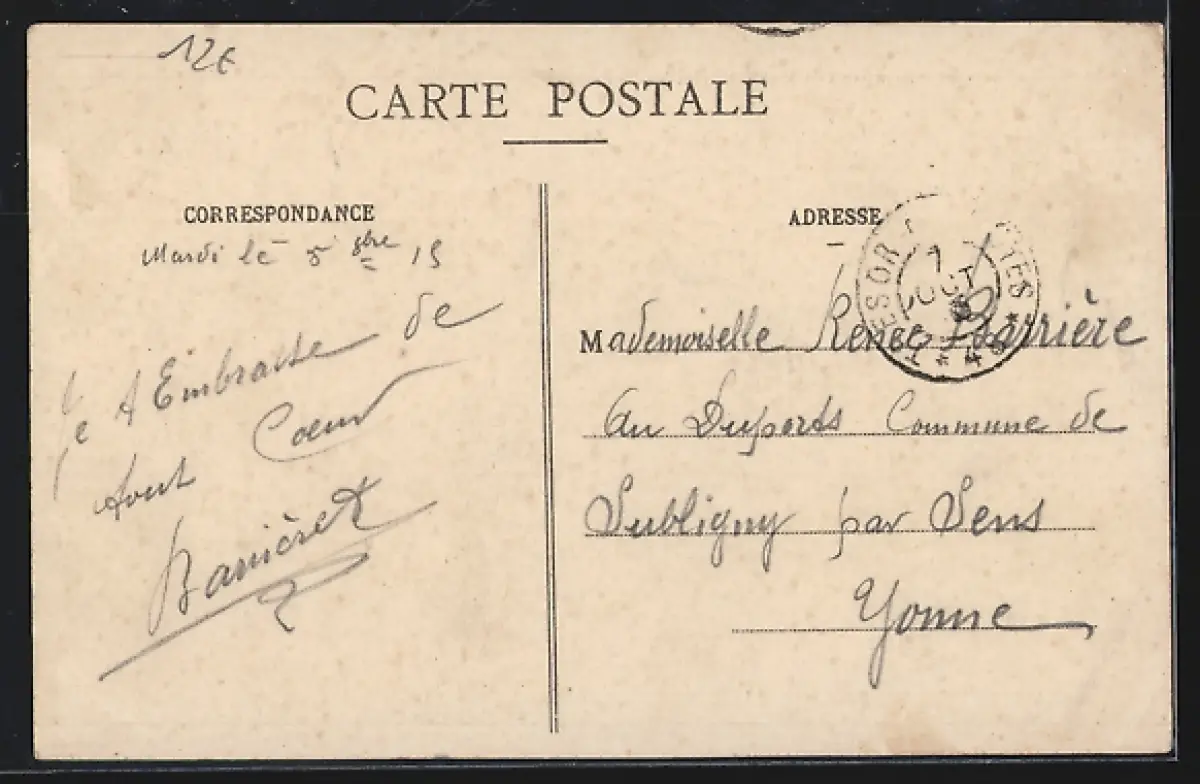 12€
CARTE POSTALE
CORRESPONDANCE
Mardi le 5 gbre 15
Je t Embrasse de
tout Coeur
Barrière
ADRESSE
TRESOR ET POSTES
7
OCT
* 48 *
Mademoiselle Renée Barrière
au Duports Commune de
Subligny par Sens
Yonne